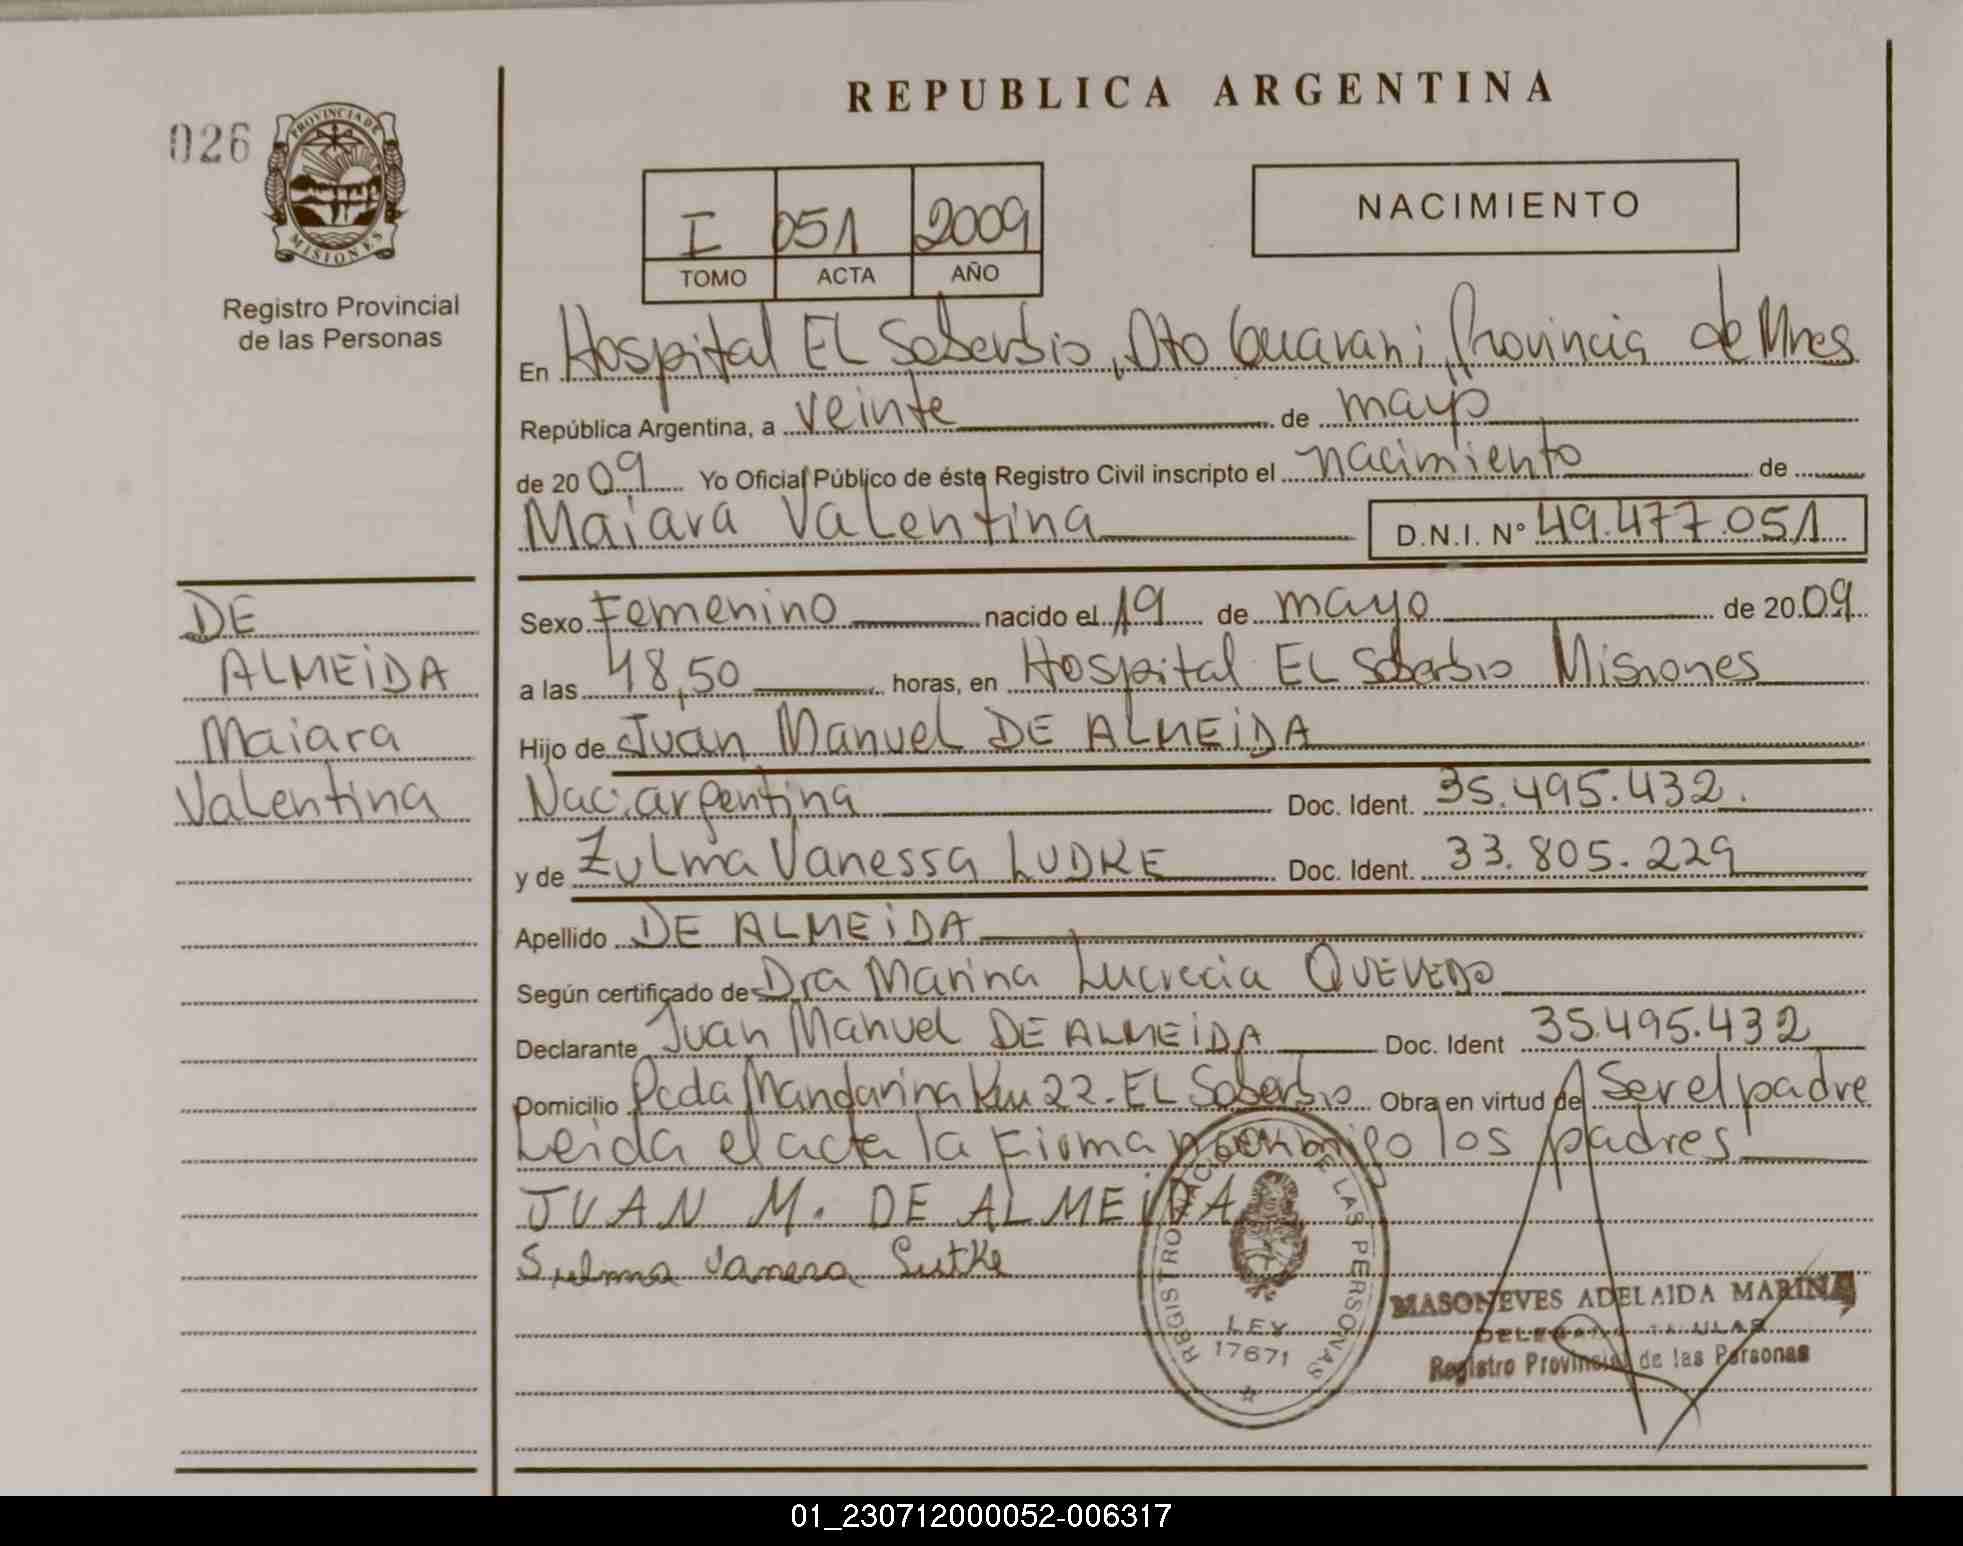 REPUBLICA ARGENTINA
026
PROVINCIA DE
MISIONES
Registro Provincial
de las Personas
I 051 2009
TOMO ACTA AÑO
NACIMIENTO
En Hospital EL Soberbio, Dto Guarani, Provincia de Mnes
República Argentina, a veinte de mayo
de 2009 Yo Oficial Público de éste Registro Civil inscripto el nacimiento de
Maiara Valentina D.N.I. Nº 49.477.051
DE
ALMEIDA
Maiara
Valentina
Sexo Femenino nacido el 19 de mayo de 2009
a las 18,50 horas, en Hospital EL Soberbio Misiones
Hijo de Juan Manuel DE ALMEIDA
Nac. argentina Doc. Ident. 35.495.432.
y de Zulma Vanessa LUDKE Doc. Ident. 33.805.229
Apellido DE ALMEIDA
Según certificado de Dra Marina Lucrecia QUEVEDO
Declarante Juan Manuel DE ALMEIDA Doc. Ident 35.495.432
Domicilio Pcda Mandarina Km 22 - EL Soberbio Obra en virtud de Ser el padre
Leida el acta la firma conmigo los padres
JUAN M. DE ALMEIDA
Sulma Vanesa Lutke
REGISTRO NACIONAL DE LAS PERSONAS
LEY
17671
MASONEVES ADELAIDA MARINA
Registro Provincial de las Personas
01_230712000052-006317